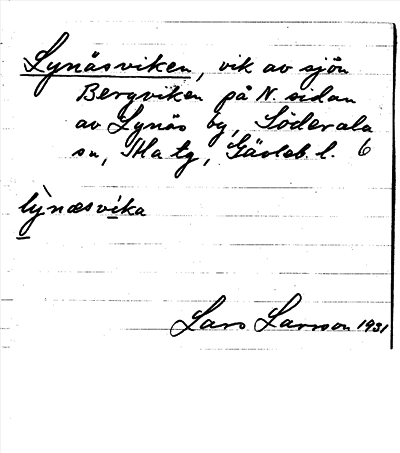 Lynäsviken, vik av sjön
Bergviken på N. sidan
av Lynäs by, Söderala
sn, Ala tg, Gävleb. l. 6
lỳnæsvika
Lars Larsson 1931